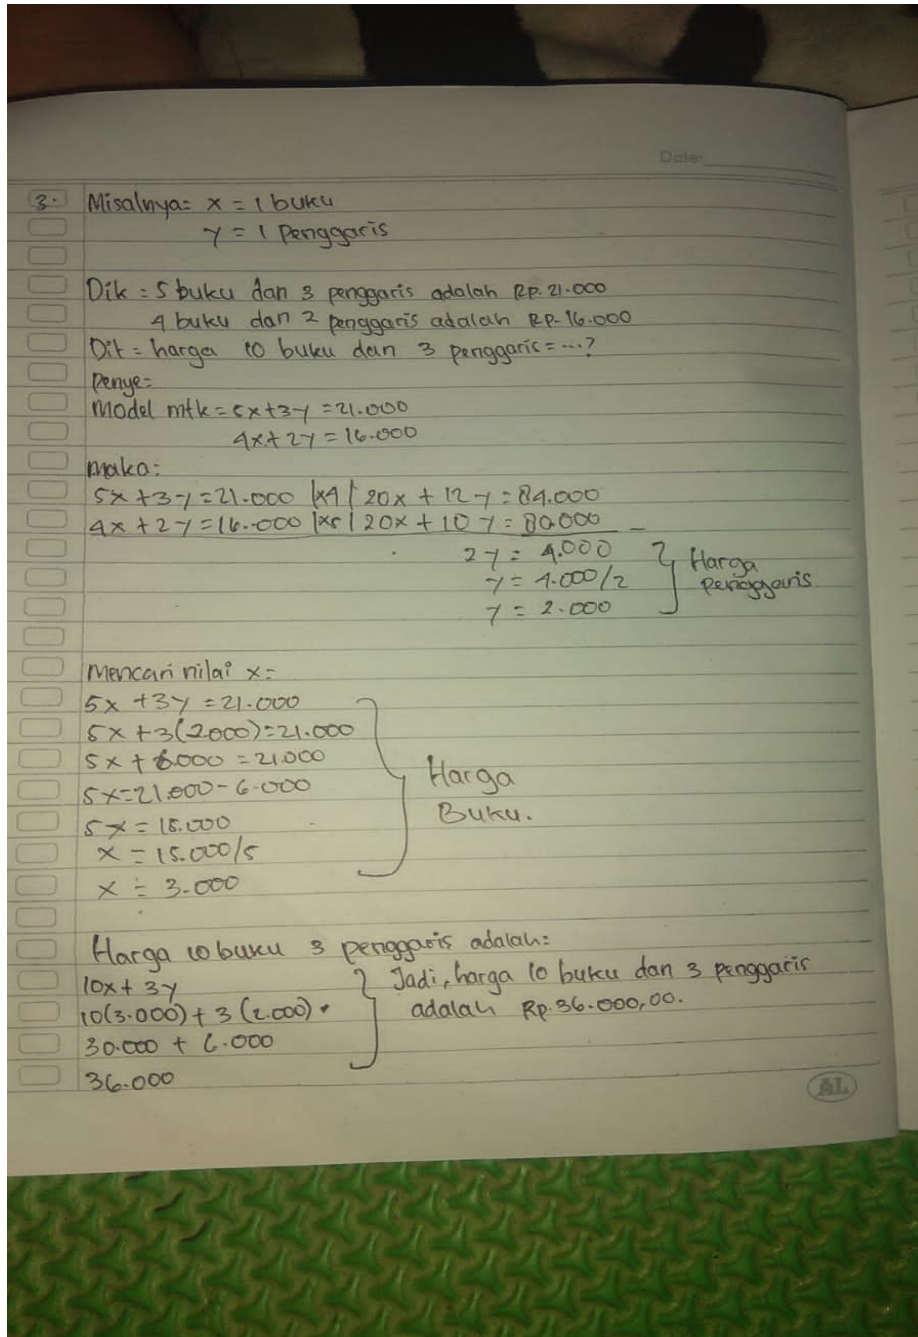 Date:
3. Misalnya= x = 1 buku
y = 1 Penggaris
Dik = 5 buku dan 3 penggaris adalah Rp. 21.000
4 buku dan 2 penggaris adalah Rp. 16.000
Dit = harga 10 buku dan 3 penggaris = ...?
Penye=
Model mtk = 5x+3y = 21.000
4x+2y = 16.000
maka=
5x+3y = 21.000 |x4| 20x + 12y = 84.000
4x + 2y = 16.000 |x5| 20x + 10y = 80.000 –
2y = 4.000
y = 4.000/2
y = 2.000
Harga Penggaris
Mencari nilai x=
5x +3y = 21.000
5x +3(2000)=21.000
5x + 6.000 = 21.000
5x=21.000 - 6.000
5x = 15.000
x = 15.000/5
x = 3.000
Harga
Buku.
Harga 10 buku 3 penggaris adalah:
10x + 3y
10(3.000) + 3 (2.000)
30.000 + 6.000
36.000
Jadi, harga 10 buku dan 3 penggaris
adalah Rp. 36.000,00.
AL